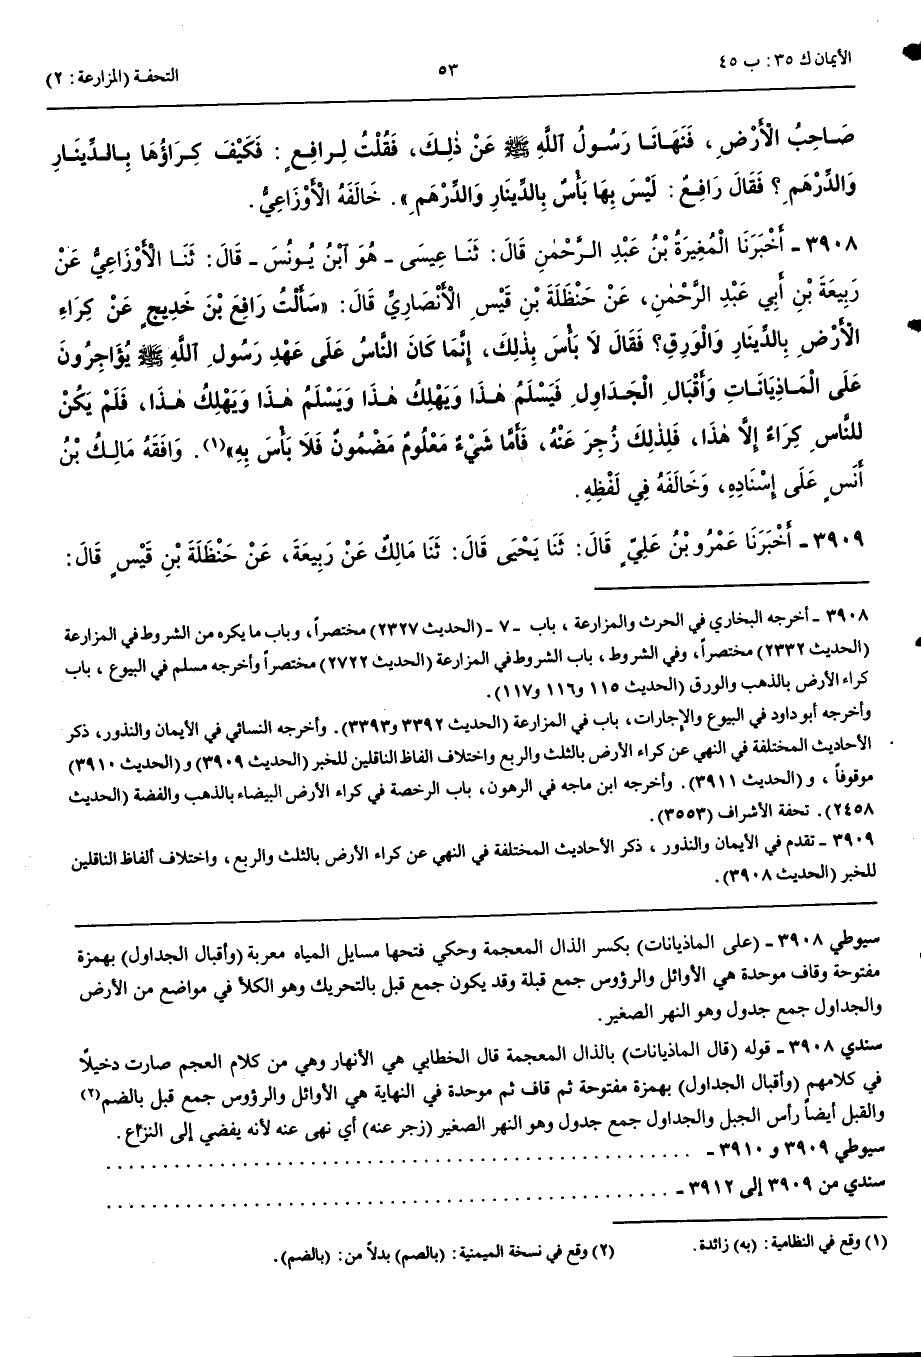 الأيمان ك ٣٥: ب ٤٥
٥٣
التحفة (المزارعة: ٢)
صَاحِبُ الْأَرْضِ، فَنَهَانَا رَسُولُ اللَّهِ ﷺ عَنْ ذٰلِكَ، فَقُلْتُ لِرافِعٍ: فَكَيْفَ كِرَاؤُهَا بِالدِّينَارِ
وَالدِّرْهَمِ؟ فَقَالَ رَافِعٌ: لَيْسَ بِهَا بَأْسٌ بِالدِّينَارِ وَالدِّرْهَمِ». خَالَفَهُ الْأَوْزَاعِيُّ.
٣٩٠٨ ـ أَخْبَرَنَا الْمُغِيرَةُ بْنُ عَبْدِ الرَّحْمٰنِ قَالَ: ثَنَا عِيسَى ـ هُوَ ابْنُ يُونُسَ ـ قَالَ: ثَنَا الْأَوْزَاعِيُّ عَنْ
رَبِيعَةَ بْنِ أَبِي عَبْدِ الرَّحْمٰنِ، عَنْ حَنْظَلَةَ بْنِ قَيْسٍ الْأَنْصَارِيِّ قَالَ: «سَأَلْتُ رَافِعَ بْنَ خَدِيجٍ عَنْ كِرَاءِ
الْأَرْضِ بِالدِّينَارِ وَالْوَرِقِ؟ فَقَالَ لَا بَأْسَ بِذٰلِكَ، إِنَّمَا كَانَ النَّاسُ عَلَى عَهْدِ رَسُولِ اللَّهِ ﷺ يُؤَاجِرُونَ
عَلَى الْمَاذِيَانَاتِ وَأَقْبَالِ الْجَدَاوِلِ فَيَسْلَمُ هٰذَا وَيَهْلِكُ هٰذَا وَيَسْلَمُ هٰذَا وَيَهْلِكُ هٰذَا، فَلَمْ يَكُنْ
لِلنَّاسِ كِرَاءٌ إِلَّا هٰذَا، فَلِذٰلِكَ زُجِرَ عَنْهُ، فَأَمَّا شَيْءٌ مَعْلُومٌ مَضْمُونٌ فَلَا بَأْسَ بِهِ»(١). وَافَقَهُ مَالِكُ بْنُ
أَنَسٍ عَلَى إِسْنَادِهِ، وَخَالَفَهُ فِي لَفْظِهِ.
٣٩٠٩ ـ أَخْبَرَنَا عَمْرُو بْنُ عَلِيٍّ قَالَ: ثَنَا يَحْيَى قَالَ: ثَنَا مَالِكٌ عَنْ رَبِيعَةَ، عَنْ حَنْظَلَةَ بْنِ قَيْسٍ قَالَ:
٣٩٠٨ ـ أخرجه البخاري في الحرث والمزارعة، باب ـ ٧ ـ (الحديث ٢٣٢٧) مختصراً، وباب ما يكره من الشروط في المزارعة
(الحديث ٢٣٣٢) مختصراً، وفي الشروط، باب الشروط في المزارعة (الحديث ٢٧٢٢) مختصراً وأخرجه مسلم في البيوع، باب
كراء الأرض بالذهب والورق (الحديث ١١٥ و١١٦ و١١٧).
وأخرجه أبو داود في البيوع والإجارات، باب في المزارعة (الحديث ٣٣٩٢ و٣٣٩٣). وأخرجه النسائي في الأيمان والنذور، ذكر
الأحاديث المختلفة في النهي عن كراء الأرض بالثلث والربع واختلاف الفاظ الناقلين للخبر (الحديث ٣٩٠٩) و(الحديث ٣٩١٠)
موقوفاً، و(الحديث ٣٩١١). وأخرجه ابن ماجه في الرهون، باب الرخصة في كراء الأرض البيضاء بالذهب والفضة (الحديث
٢٤٥٨). تحفة الأشراف (٣٥٥٣).
٣٩٠٩ ـ تقدم في الأيمان والنذور، ذكر الأحاديث المختلفة في النهي عن كراء الأرض بالثلث والربع، واختلاف ألفاظ الناقلين
للخبر (الحديث ٣٩٠٨).
سيوطي ٣٩٠٨ ـ (على الماذيانات) بكسر الذال المعجمة وحكي فتحها مسايل المياه معربة (وأقبال الجداول) بهمزة
مفتوحة وقاف موحدة هي الأوائل والرؤوس جمع قبلة وقد يكون جمع قبل بالتحريك وهو الكلأ في مواضع من الأرض
والجداول جمع جدول وهو النهر الصغير.
سندي ٣٩٠٨ ـ قوله (قال الماذيانات) بالذال المعجمة قال الخطابي هي الأنهار وهي من كلام العجم صارت دخيلاً
في كلامهم (وأقبال الجداول) بهمزة مفتوحة ثم قاف ثم موحدة في النهاية هي الأوائل والرؤوس جمع قبل بالضم(٢)
والقبل أيضاً رأس الجبل والجداول جمع جدول وهو النهر الصغير (زجر عنه) أي نهى عنه لأنه يفضي إلى النزاع.
سيوطي ٣٩٠٩ و ٣٩١٠ ـ . . . . . . . . . . . . . . . . . . . .
سندي من ٣٩٠٩ إلى ٣٩١٢ ـ . . . . . . . . . . . . . . . . . . . .
(١) وقع في النظامية: (به) زائدة.
(٢) وقع في نسخة الميمنية: (بالصم) بدلاً من: (بالضم).